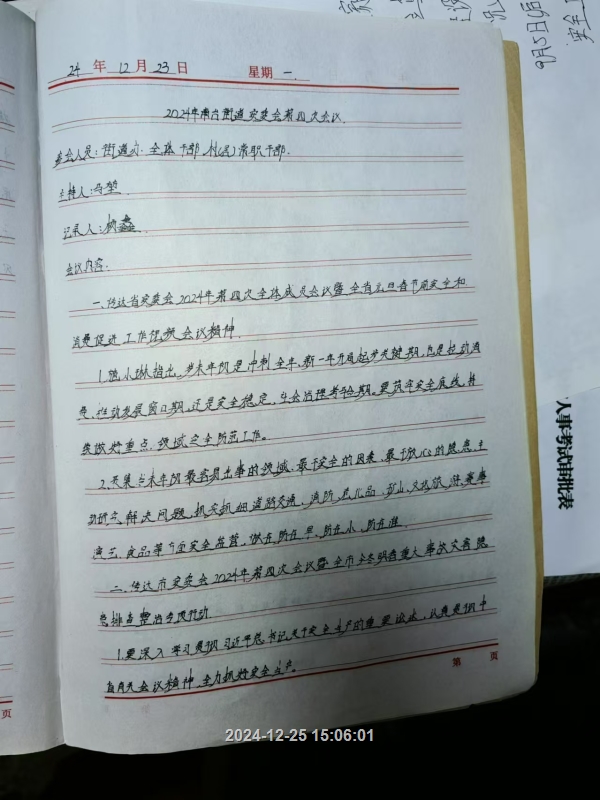 24 年 12 月 23 日 星期 一.
2024年南 街道安委会第四次会议.
参会人员: 街道办 全体干部, 村(居)常职干部.
主持人:
记录人:
会议内容:
一、传达省安委会2024年第四次全体成员会议暨全省元旦春节期安全和
消费促进工作视频会议精神.
指出, 岁末年初是冲刺全年, 新一年开启起步关键期, 也是拉动消
费, 推动发展窗口期, 还是安全稳定, 社会治理考验期. 要筑牢安全底线, 持
续做好重点 领域安全防范工作.
2. 岁末年初最容易出事的领域, 最不安全的因素, 最不放心的隐患, 主
动研究, 解决问题, 抓实抓细道路交通, 消防, 危化品, 矿山, 文化旅游, 赛事
演艺, 食品等 安全监管, 做在所在早, 所在小, 所在准.
二、传达市安委会2024年第四次会议暨全市今冬明春重大事故灾害隐
患排查整治专项行动
1. 要深入学习贯彻习近平总书记关于安全生产的重要论述, 认真贯彻中
有关会议精神, 全力抓好安全生产.
第 页
页
2024-12-25 15:06:01
人事考试审批表
9月5日
安全